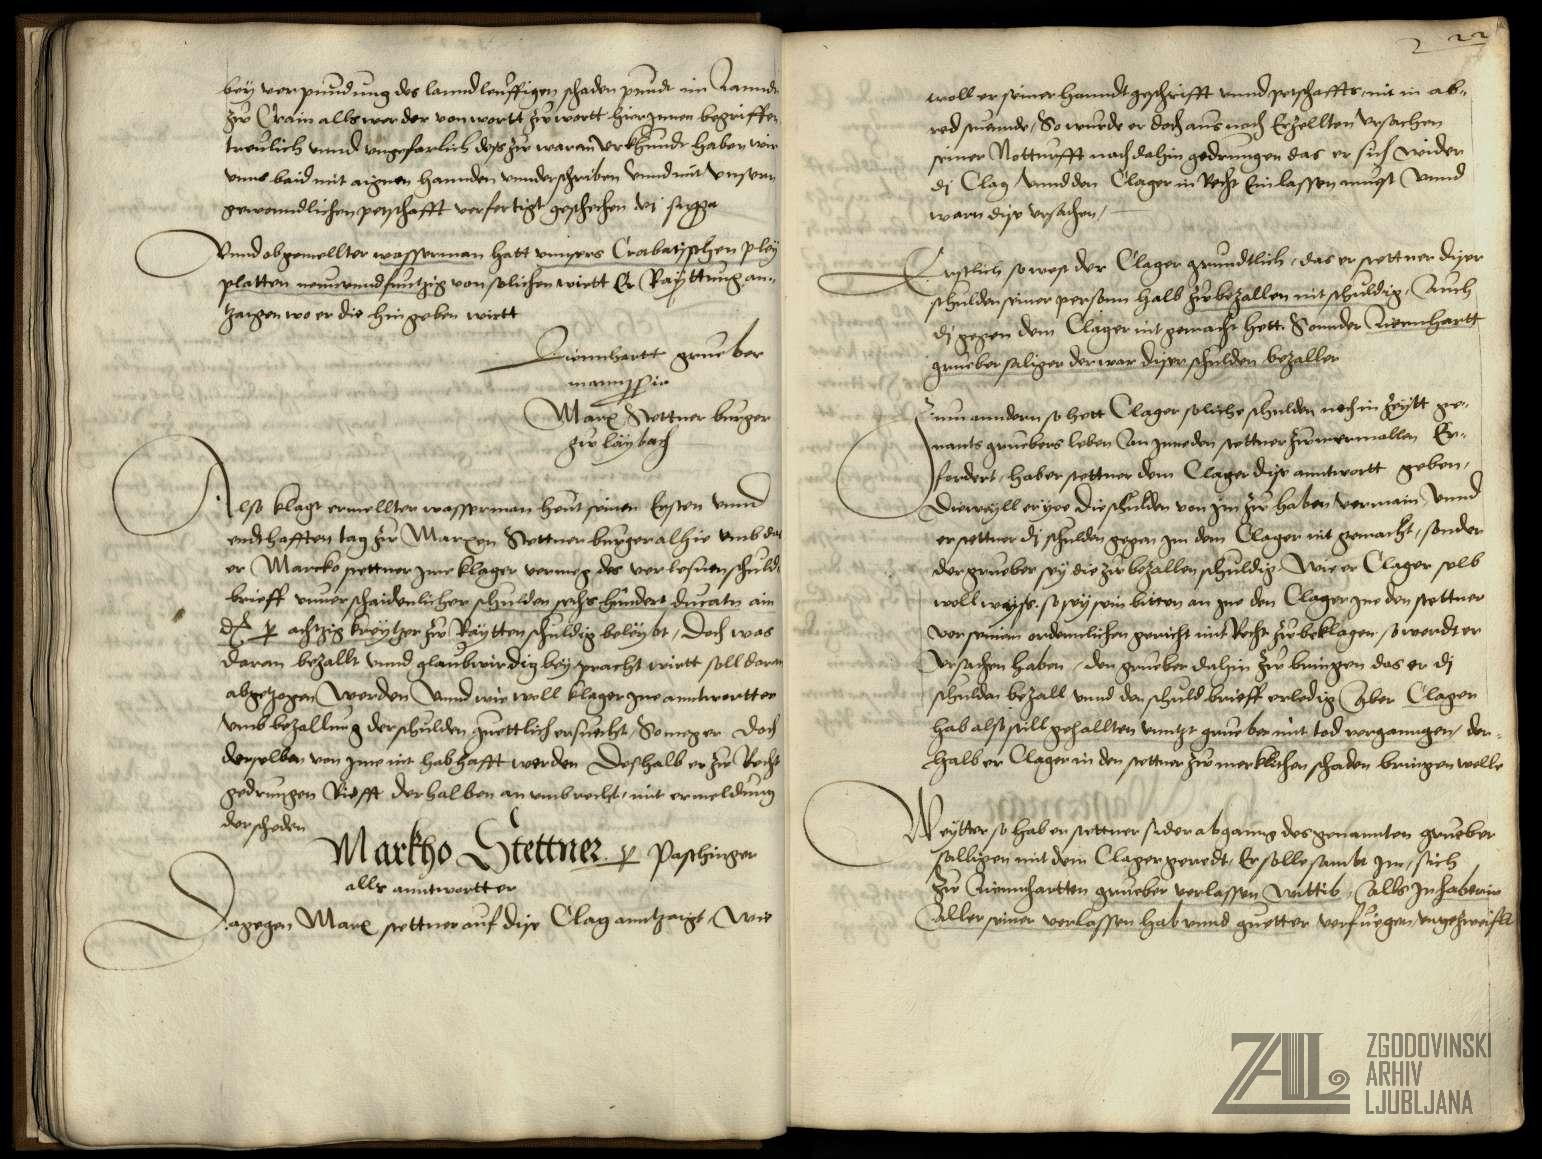 bey verpundung des lanndleuffigen schaden pundt im Lannde
zw Crain alls wer der von wortt zw wortt hierjnnen begriffen
treulich unnd ungefarlich des zw warem Urkhundt haben wir
unns baid mit aignen hannden unnderschriben Unnd mit Unsern
gewondlichen petschafft verfertigt geschechen
Unnd obgemellter wasserman hatt unnsers Crabatischen pley
platten neunundfuntzig von solichen wirtt Er Rayttung an-
tzaigen wo er die hingeben wirtt
Liennhartt grueber
manu propria
Marx Stettner burger
zw laybach
Also klagt ermellter wasserman heut seinen Ersten unnd
endthafften tag zw Marxen Stettner burger alhie umb das
er Marcko stettner jme klager vermug des verlesnen schuld
brieff unverschaidenlicher schulden sechs hundert ducatn ain
achtzig kreytzer zw Raytten schuldig beleybt, Doch was
daran bezallt unnd glaubwirdig beypracht wirtt soll daran
abgetzogen werden Unnd wie woll klager jme anntwortter
umb bezallung der schulden guettlich ersuecht, So mag er Doch
derselben von jme nit habhafft werden Deshalb er zw Recht
gedrungen Riefft derhalben an umb recht, mit ermeldung
der scheden
Markho Stettner per Paschinger
alls anntwortter
Dagegen Marx stettner auf dise Clag anntzaigt, Wie
22
woll er seiner hanndtgeschrifft unnd petschaffts, nit in ab-
red stuennde, So wurde er doch aus nach Erzellten Ursachen
seiner Notturfft nach dahin gedrungen das er sich wider
di Clag Unnd den Clager in Recht Einlassen muest Unnd
warn dise ursachen,
Erstlich so wes der Clager grundtlich, das er stettner diser
schulden seiner person halb zw bezallen nit schuldig, Auch
di gegen dem Clager nit gemacht hett. Sonnder Liennhartt
grueber saliger der war diser schulden bezaller
Zum anndern so hett Clager soliche schulden noch in Zeytt ge-
nants gruebers leben An jme den stettner zw mermallen Er-
fordert, hab er stettner dem Clager dise anntwortt geben,
Dieweyll er ye die schulden von jm zw haben vermain, Unnd
er stettner di schulden gegen jm dem Clager nit gemacht, sonder
der grueber sey die zw bezallen schuldig Wie er Clager selb
woll wayss. so sey sein bitten an jne den Clager jne den stettner
vor seinem ordennlichen gericht mit Recht zw beklagen, so werdt er
Ursachen haben, den grueber dahin zw bringen das er di
schulden bezall unnd den schuld brieff erledig Aber Clager
hab also still gehallten unntzt grueber mit tod verganngen, der-
halb er Clager in den stettner zw mercklichen schaden bringen welle
Weytter so hab er stettner sider abganng des genannten grueber
salligen mit dem Clager geredt, Er solle sambt jm, sich
zw Liennhartten grueber verlassen wittib, Alls jnhaberin
Aller seiner verlassen hab unnd guetter verfuegen, ungezweiflt
ZAL ZGODOVINSKI
ARHIV
LJUBLJANA